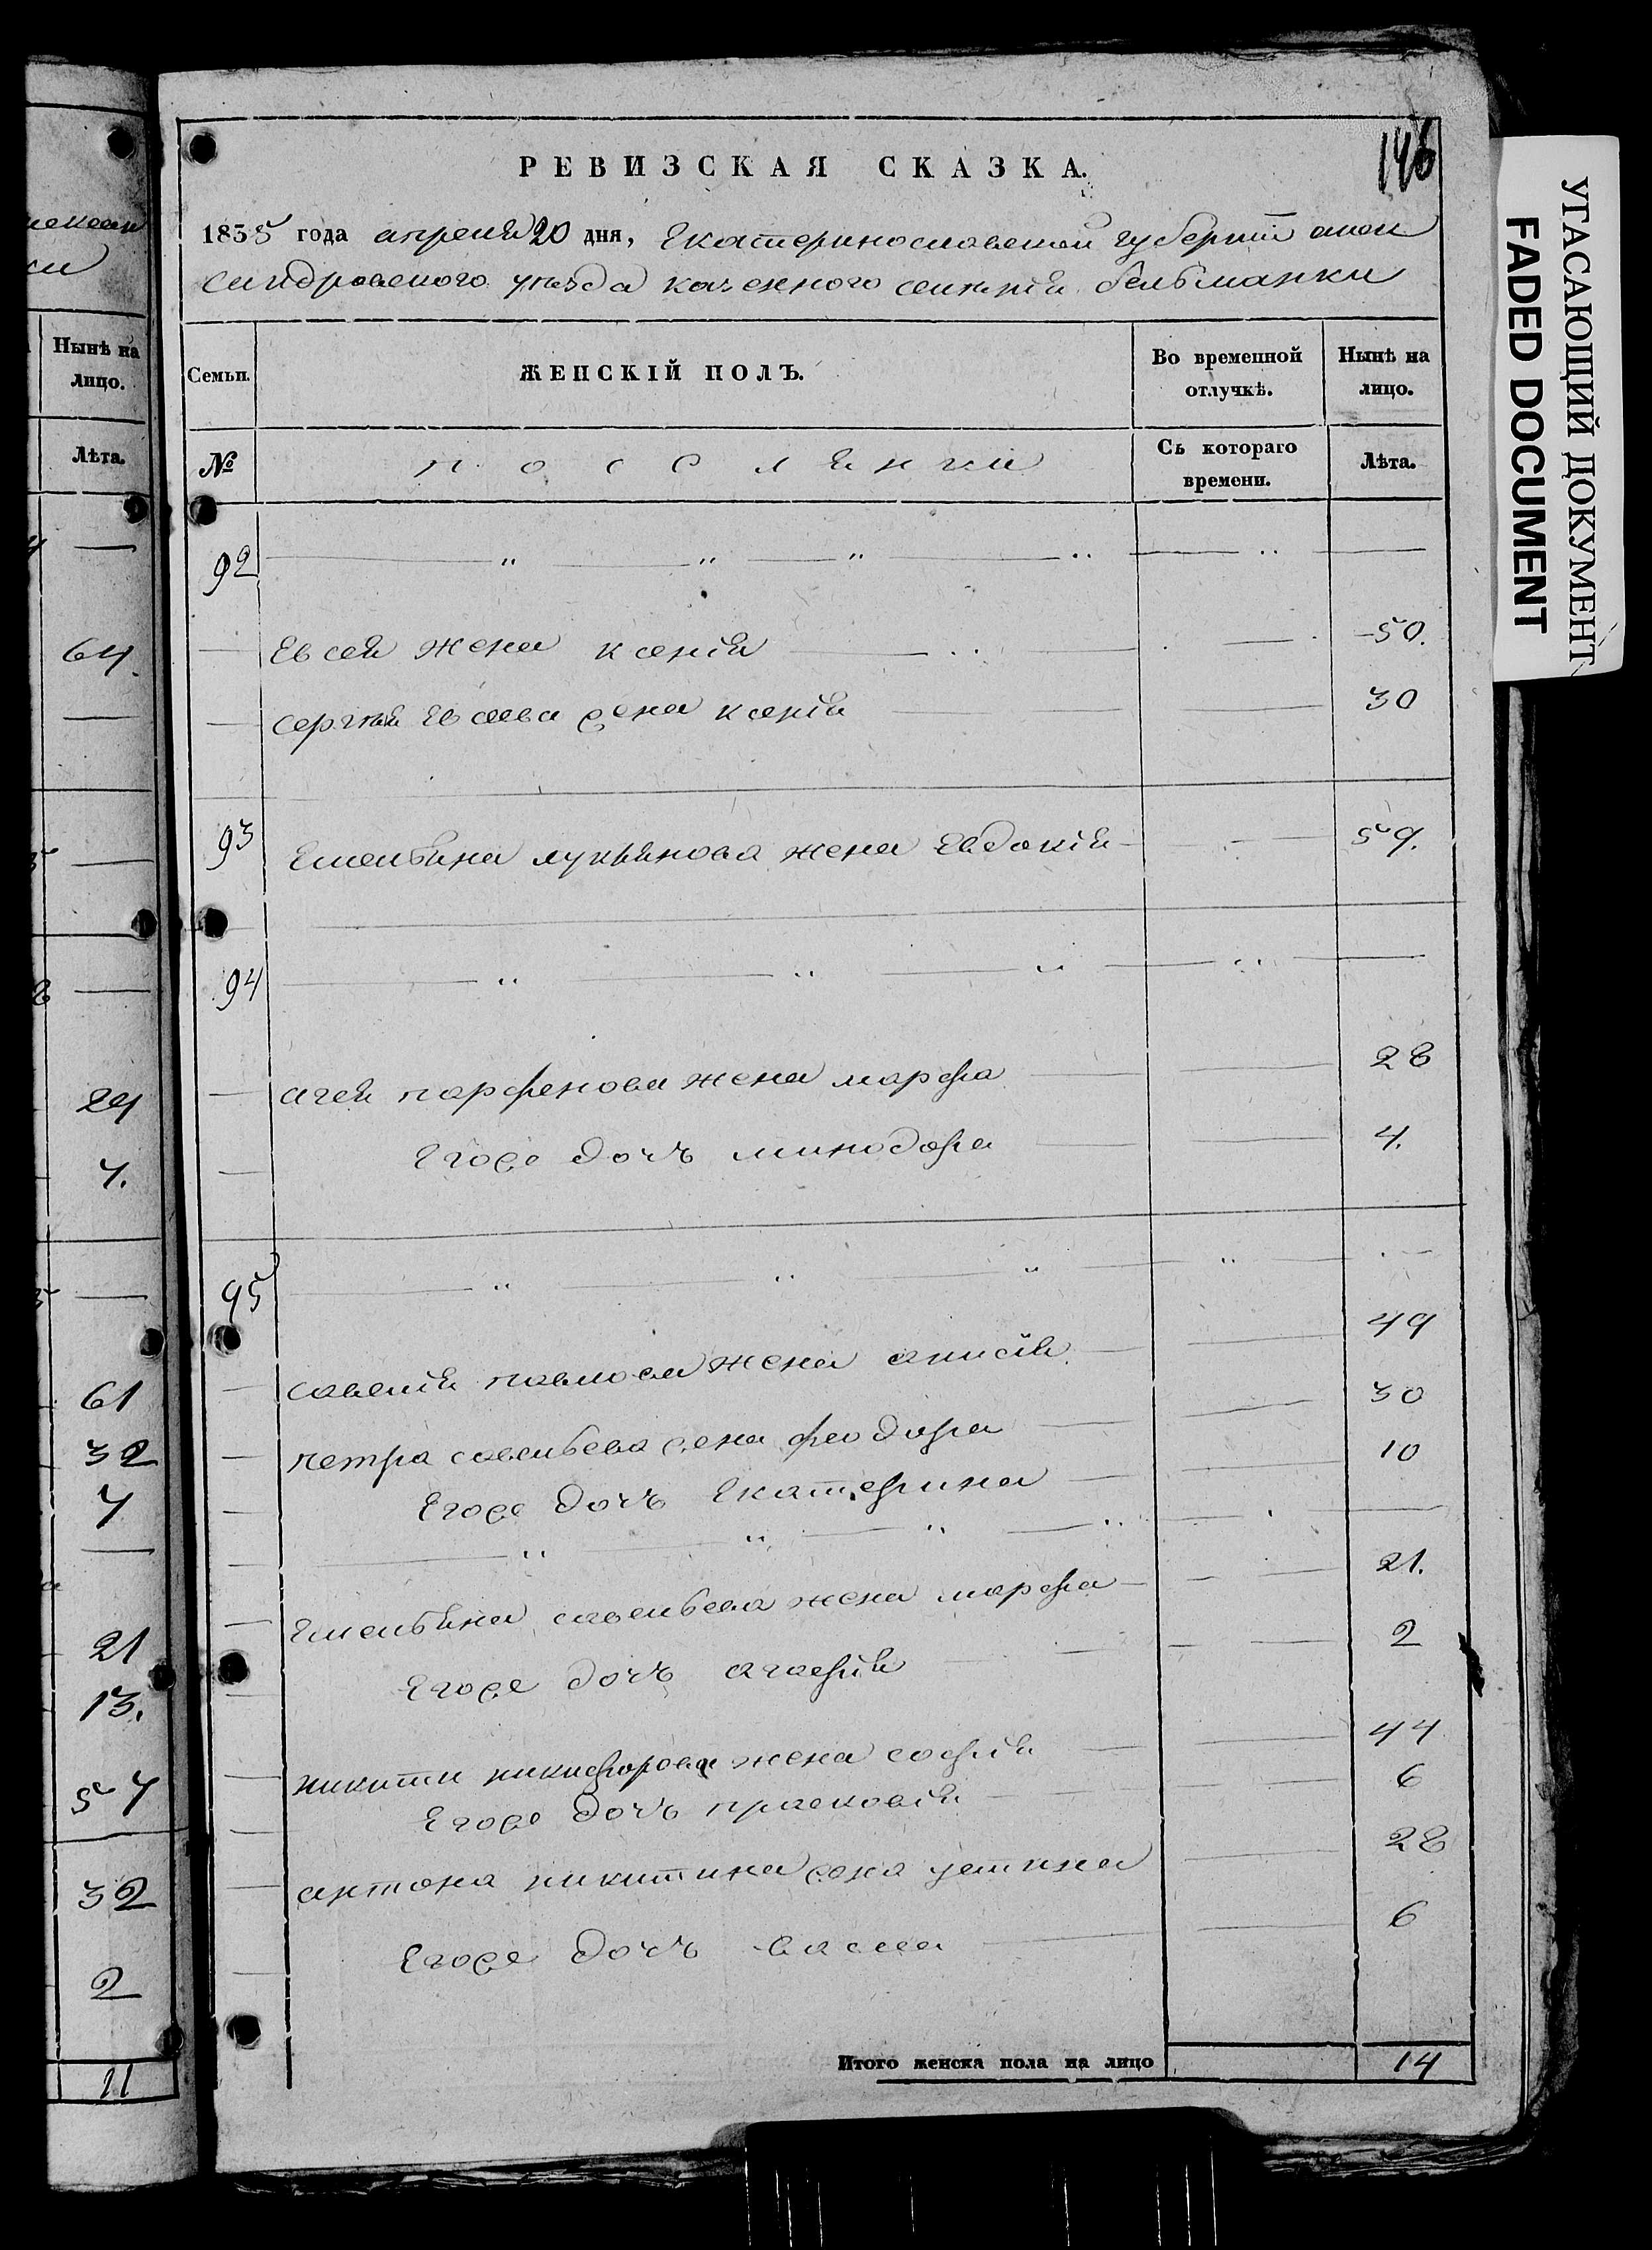 РЕВИЗСКАЯ СКАЗКА.
146
1855 года апреля 20 дня, Екатеринославской губерніи алек
сандровского уезда казенного селенія бельманки
Семьи.
ЖЕНСКІЙ ПОЛЪ.
Во временной отлучкѣ.
Нынѣ на лицо.
№
поселянки
Съ котораго времени.
Лѣта.
92
Евсея жена ксенія 50.
сергея Евсеева жена ксенія 30
93 Емельяна лукьянова жена Евдокія 59.
94
агея парфенова жена марфа 28
Егоже дочь минодора 4.
95
савелія павлова жена анисія 49
петра савельева жена феодора 30
Егоже дочь Екатерина 10
Емельяна савельева жена марфа 21.
Егоже дочь агафія 2
никиты никифорова жена софія 44
Егоже дочь прасковія 6
антона никитина жена устина 28
Егоже дочь васса 6
Итого женска пола на лицо 14
Нынѣ на
лицо.
Лѣта.
64.
24
7.
61
32
7
21
13.
57
32
2
11
УГАСАЮЩИЙ ДОКУМЕНТ
FADED DOCUMENT